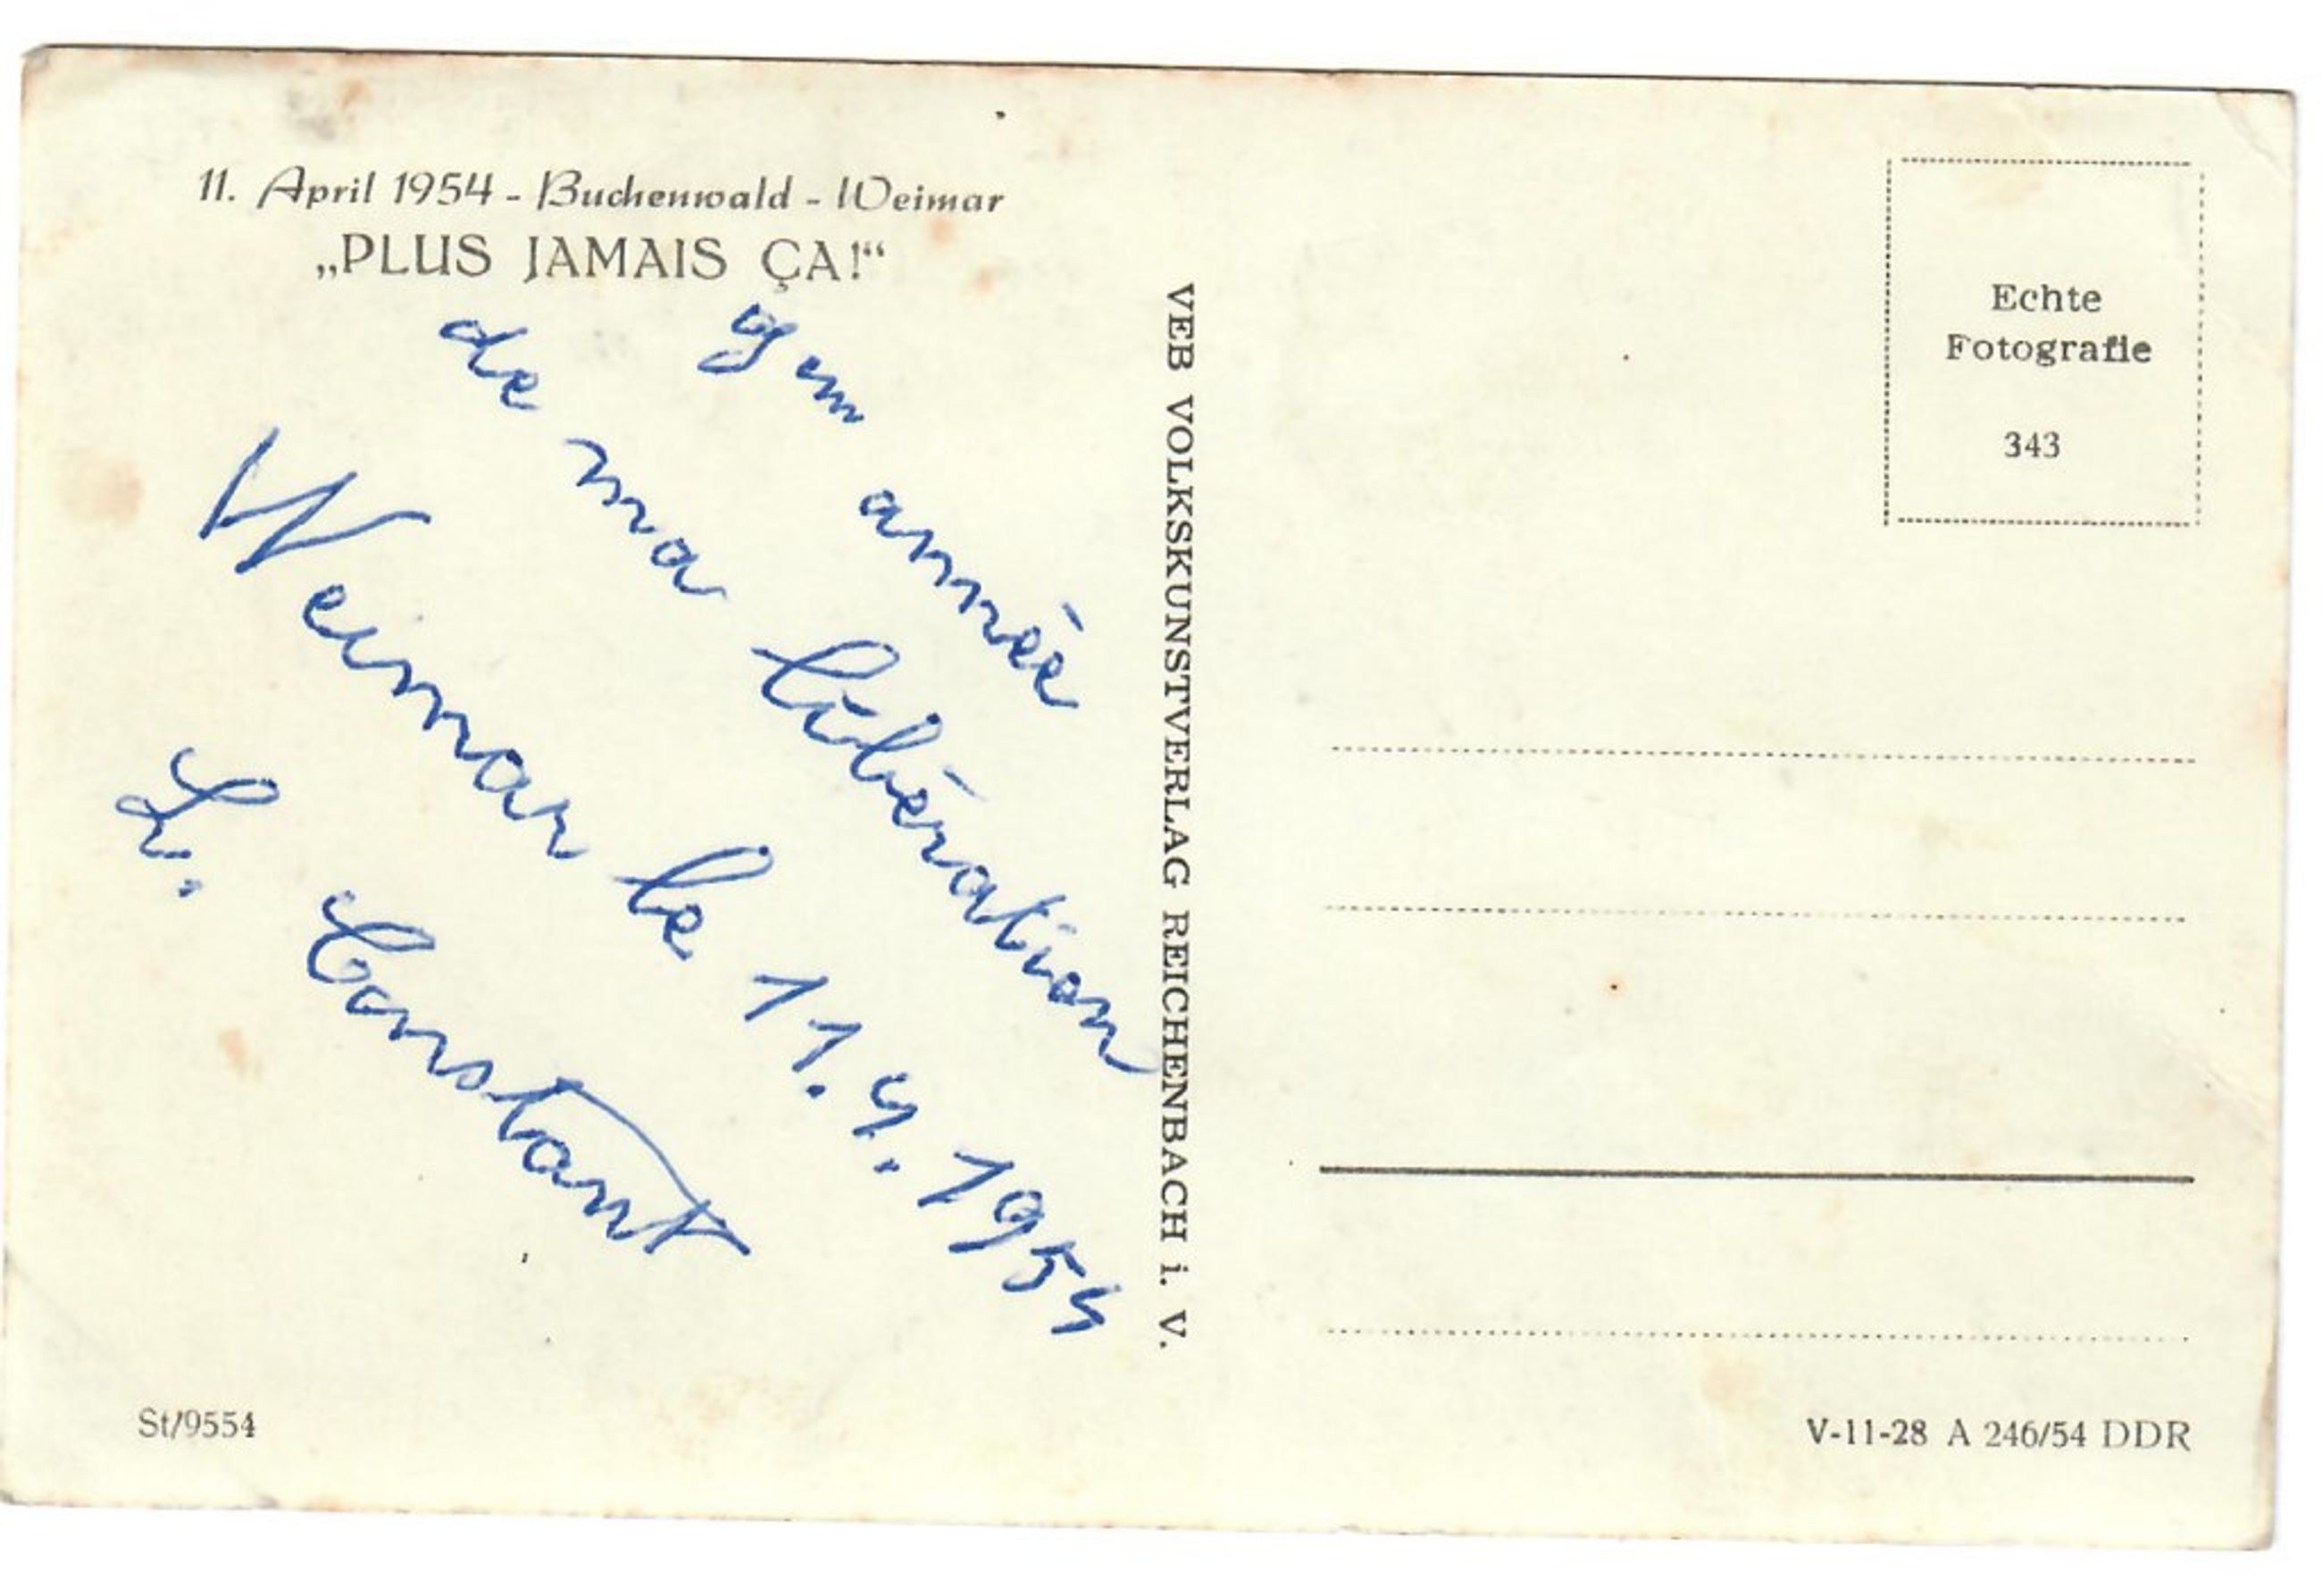 11. April 1954 - Buchenwald - Weimar
„PLUS JAMAIS ÇA!“
9 em année
de ma libération
Weimar le 11.4.1954
L. Constant
St/9554
VEB VOLKSKUNSTVERLAG REICHENBACH i. V.
Echte
Fotografie
343
V-11-28 A 246/54 DDR